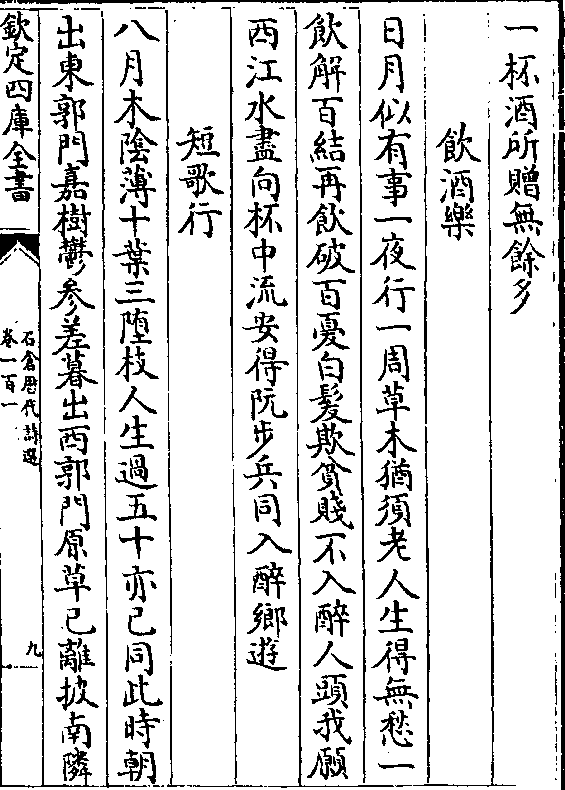 一杯酒所贈無餘多
飲酒樂
日月似有事一夜行一周草木猶須老人生得無愁一
飲解百結再飲破百憂白髮欺貧賤不入醉人頭我願
西江水盡向杯中流安得阮步兵同入醉鄉遊
短歌行
八月木陰薄十葉三墮枝人生過五十亦已同此時朝
出東郭門嘉樹鬱參差暮出西郭門原草已離披南隣
欽定四庫全書
石倉歷代詩選
卷一百一
九